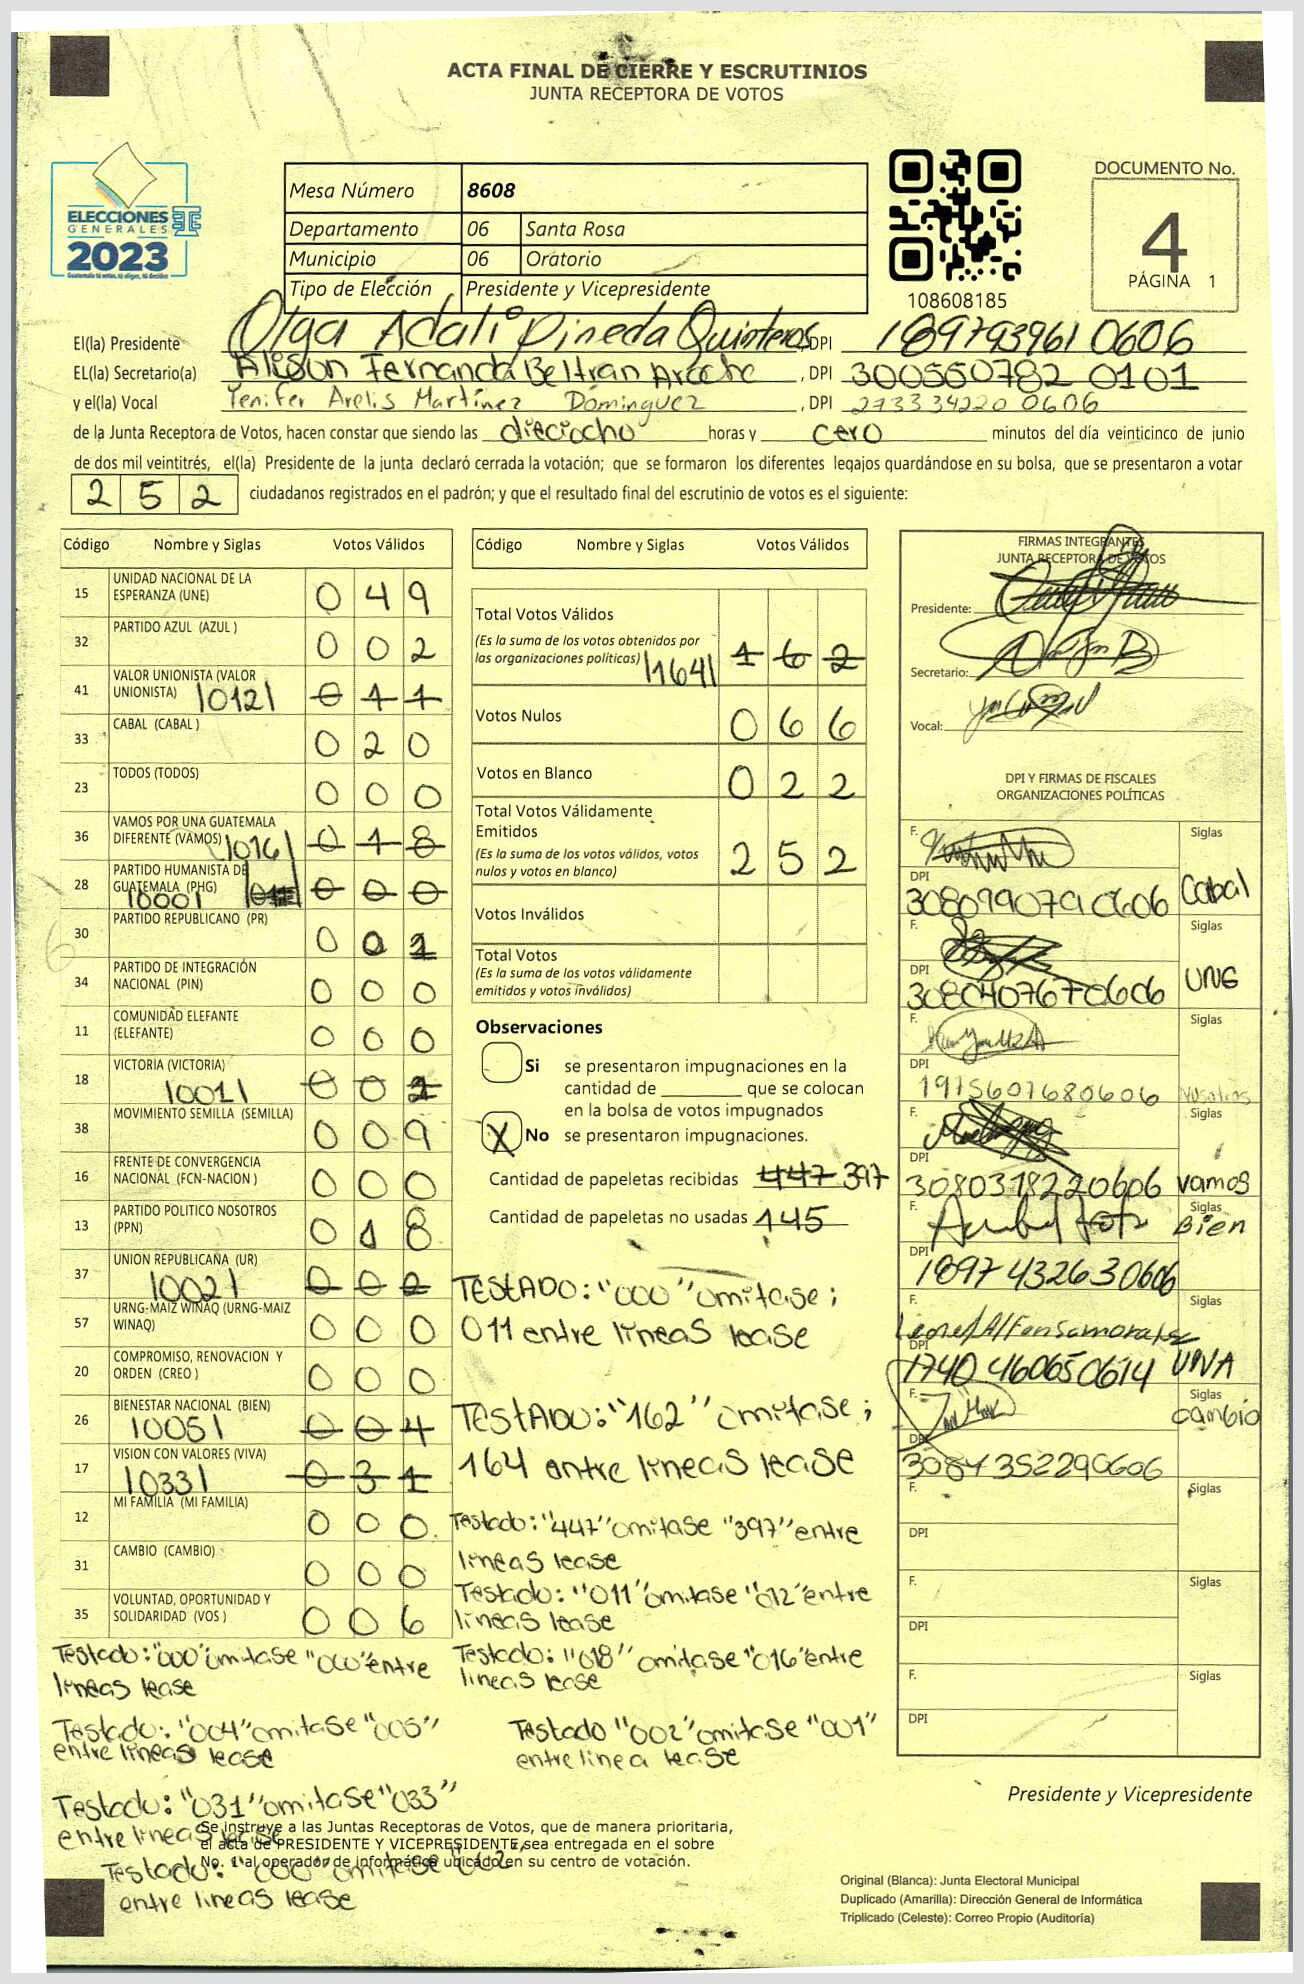 ACTA FINAL DE CIERRE Y ESCRUTINIOS
JUNTA RECEPTORA DE VOTOS
ELECCIONES
GENERALES
2023
Mesa Número 8608
Departamento 06 Santa Rosa
Municipio 06 Oratorio
Tipo de Elección Presidente y Vicepresidente
108608185
DOCUMENTO No.
4
PÁGINA 1
El(la) Presidente Olga Adali Pineda Quinteros, DPI 189793961 0606
EL(la) Secretario(a) Alison Fernanda Beltran Aroche, DPI 300550782 0101
y el(la) Vocal Yenifer Arelis Martínez Dominguez, DPI 273334220 0606
de la Junta Receptora de Votos, hacen constar que siendo las dieciocho horas y cero minutos del día veinticinco de junio
de dos mil veintitrés, el(la) Presidente de la junta declaró cerrada la votación; que se formaron los diferentes legajos quardándose en su bolsa, que se presentaron a votar
2 5 2 ciudadanos registrados en el padrón; y que el resultado final del escrutinio de votos es el siguiente:
Código Nombre y Siglas Votos Válidos
15 UNIDAD NACIONAL DE LA ESPERANZA (UNE) 0 4 9
32 PARTIDO AZUL (AZUL ) 0 0 2
41 VALOR UNIONISTA (VALOR UNIONISTA) |012| 0 1 1
33 CABAL (CABAL ) 0 2 0
23 TODOS (TODOS) 0 0 0
36 VAMOS POR UNA GUATEMALA DIFERENTE (VAMOS) |016| 0 1 8
28 PARTIDO HUMANISTA DE GUATEMALA (PHG) |000| 0 0 0
30 PARTIDO REPUBLICANO (PR) 0 0 1
34 PARTIDO DE INTEGRACIÓN NACIONAL (PIN) 0 0 0
11 COMUNIDAD ELEFANTE (ELEFANTE) 0 0 0
18 VICTORIA (VICTORIA) |001| 0 0 2
38 MOVIMIENTO SEMILLA (SEMILLA) 0 0 9
16 FRENTE DE CONVERGENCIA NACIONAL (FCN-NACION ) 0 0 0
13 PARTIDO POLITICO NOSOTROS (PPN) 0 1 8
37 UNION REPUBLICANA (UR) |002| 0 0 2
57 URNG-MAIZ WINAQ (URNG-MAIZ WINAQ) 0 0 0
20 COMPROMISO, RENOVACION Y ORDEN (CREO ) 0 0 0
26 BIENESTAR NACIONAL (BIEN) |005| 0 0 4
17 VISION CON VALORES (VIVA) |033| 0 3 1
12 MI FAMILIA (MI FAMILIA) 0 0 0
31 CAMBIO (CAMBIO) 0 0 0
35 VOLUNTAD, OPORTUNIDAD Y SOLIDARIDAD (VOS ) 0 0 6
Código Nombre y Siglas Votos Válidos
Total Votos Válidos
(Es la suma de los votos obtenidos por
las organizaciones políticas) |164| 1 6 2
Votos Nulos 0 6 6
Votos en Blanco 0 2 2
Total Votos Válidamente
Emitidos
(Es la suma de los votos válidos, votos
nulos y votos en blanco) 2 5 2
Votos Inválidos
Total Votos
(Es la suma de los votos válidamente
emitidos y votos inválidos)
Observaciones
Si se presentaron impugnaciones en la
cantidad de ________ que se colocan
en la bolsa de votos impugnados
X No se presentaron impugnaciones.
Cantidad de papeletas recibidas 447 397
Cantidad de papeletas no usadas 145
TESTADO: "000" omitase;
011 entre líneas lease
TESTADO: "162" omitase;
164 entre lineas lease
Testado: "447" omitase "397" entre
líneas lease
Testado: "011" omitase "012" entre
líneas lease
Testado: "018" omitase "016" entre
lineas lease
Testado "002" omitase "001"
entre linea lease
Testado: "000" omitase "000" entre
líneas lease
Testado: "004" omitase "005"
entre líneas lease
Testado: "031" omitase "033"
entre lineas lease
Testado: "000" omitase "002"
entre lineas lease
FIRMAS INTEGRANTES
JUNTA RECEPTORA DE VOTOS
Presidente:
Secretario:
Vocal:
DPI Y FIRMAS DE FISCALES
ORGANIZACIONES POLÍTICAS
F. Siglas
DPI 308099079 0606 Cabal
F. Siglas
DPI 308040767 0606 UNE
F. Siglas
DPI 197560768 0606
F. Siglas
DPI 308031822 0606 vamos
F. Siglas Bien
DPI 189743263 0606
F. Siglas
DPI 1740 46065 0614
F. Siglas cambio
DPI 308435229 0606
F. Siglas
DPI
F. Siglas
DPI
F. Siglas
DPI
Presidente y Vicepresidente
Se instruye a las Juntas Receptoras de Votos, que de manera prioritaria,
el acta de PRESIDENTE Y VICEPRESIDENTE sea entregada en el sobre
No. 1 al operador de informática ubicado en su centro de votación.
Original (Blanca): Junta Electoral Municipal
Duplicado (Amarilla): Dirección General de Informática
Triplicado (Celeste): Correo Propio (Auditoría)